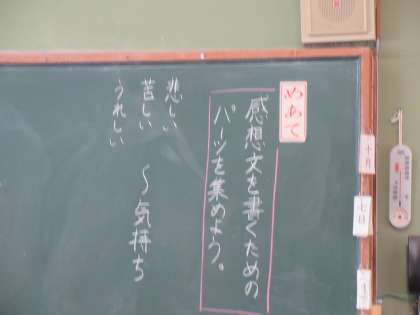 十月
七日
めあて
感想文を書くための
パーツを集めよう。
悲しい
苦しい
うれしい
～気持ち